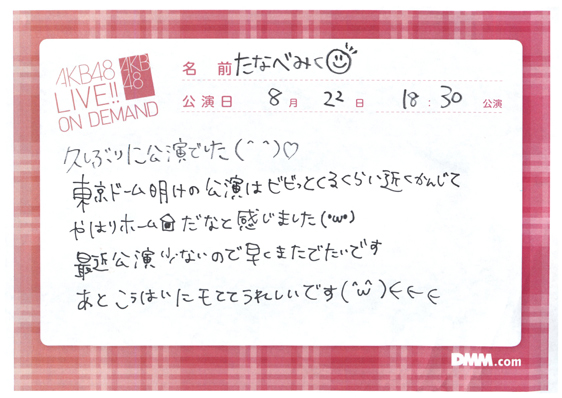 AKB48
LIVE!!
ON DEMAND
AKB
48
名 前 たなべみく
公演日 8月 22日 18:30 公演
久しぶりに公演でした(^^)♡
東京ドーム明けの公演はビビっとくるくらい近くかんじて
やはりホームだなと感じました(・ω・)
最近公演少ないので早くまたでたいです
あとこうはいにモテてうれしいです(^ω^)← ← ←
DMM.com